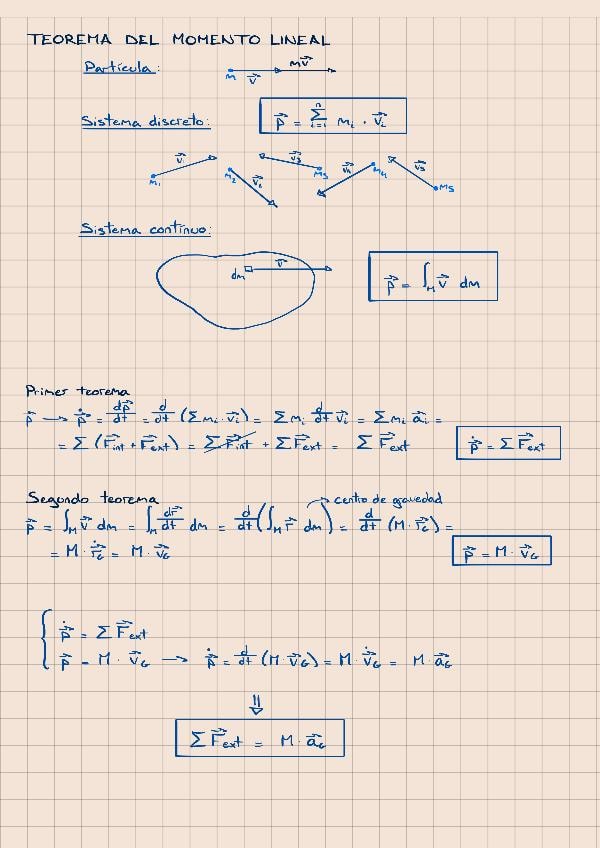 TEOREMA DEL MOMENTO LINEAL
Partícula:
m v⃗ mv⃗
Sistema discreto:
p⃗ = Σ_{i=i}^{n} mᵢ · v⃗ᵢ
m₁ v⃗₁ m₂ v⃗₂ v⃗₃ m₃ v⃗₄ m₄ v⃗₅ m₅
Sistema contínuo:
dm v⃗
p⃗ = ∫_M v⃗ dm
Primer teorema
p⃗ → ṗ⃗ = dp⃗/dt = d/dt (Σmᵢ·v⃗ᵢ) = Σmᵢ d/dt v⃗ᵢ = Σmᵢ a⃗ᵢ =
= Σ (F⃗int + F⃗ext) = ΣF⃗int + ΣF⃗ext = ΣF⃗ext
ṗ⃗ = ΣF⃗ext
Segundo teorema
centro de gravedad
p⃗ = ∫_M v⃗ dm = ∫_M dr⃗/dt dm = d/dt (∫_M r⃗ dm) = d/dt (M·r⃗_G) =
= M·ṙ⃗_G = M·v⃗_G
p⃗ = M·v⃗_G
{ ṗ⃗ = ΣF⃗ext
p⃗ = M·v⃗_G → ṗ⃗ = d/dt (M·v⃗_G) = M·v̇⃗_G = M·a⃗_G
⇓
ΣF⃗ext = M·a⃗_G